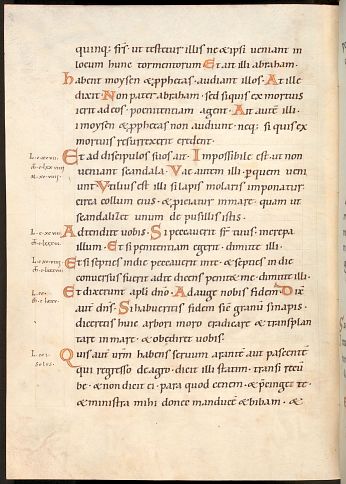 quinq; frs. ut testetur illis ne & ipsi veniant in
locum hunc tormentorum. Et ait illi abraham.
habent moysen & pphetas. audiant illos. At ille
dixit. Non pater abraham. sed si quis ex mortuis
ierit ad eos. poenitentiam agent. Ait aute illi.
i moysen & pphetas non audiunt. neq; si quis ex
mortuis resurrexerit credent.
Et ad discipulos suos ait. Impossibile est ut non
veniant scandala. Vae autem illi p quem veni
unt. Utilius est illi si lapis molaris imponatur
circa collum eius. & piciatur in mare. quam ut
scandaliz& unum de pusillis istis.
Adtendite vobis. Si peccaverit fr tuus. increpa
illum. Et si penitentiam egerit. dimitte illi.
Et si septies in die peccaverit in te. & septies in die
conversus fuerit ad te dicens penit& me. dimitte illi.
Et dixerunt apli dno. Adauge nobis fidem. Dix
aut dns. Si habueritis fidem sic granu sinapis.
dicetis huic arbori moro eradicare & transplan
tare in mare. & obediet vobis.
Quis aut vrm habens servum arante aut pascente
qui regresso de agro. dicit illi statim. transi recu
be. & non dicit ei. para quod cenem. & pcinge te
& ministra mihi donec manduce & bibam. &